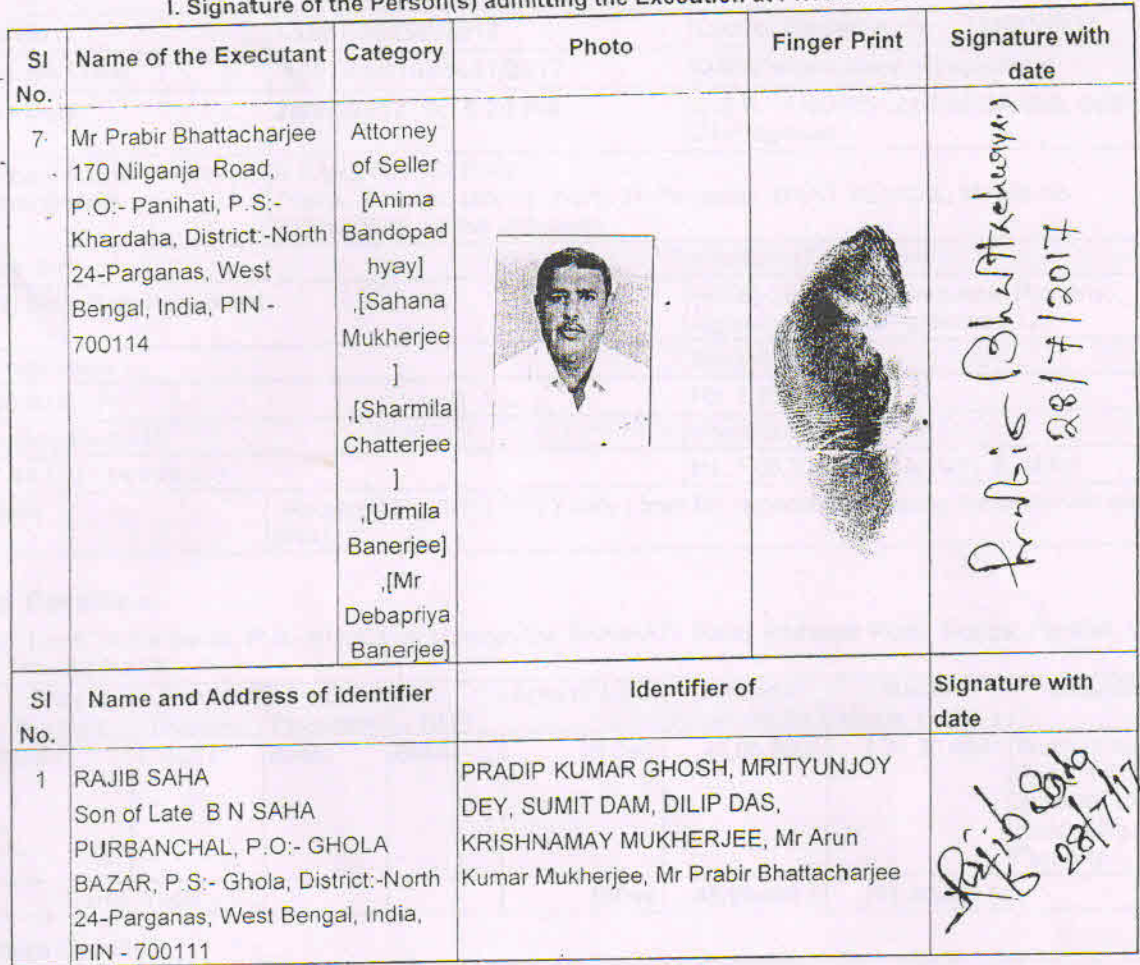 I. Signature of the Person(s) admitting the Execution at
Sl No. Name of the Executant Category Photo Finger Print Signature with date
7 Mr Prabir Bhattacharjee
170 Nilganja Road,
P.O:- Panihati, P.S:-
Khardaha, District:-North
24-Parganas, West
Bengal, India, PIN -
700114
Attorney
of Seller
[Anima
Bandopad
hyay]
,[Sahana
Mukherjee
]
,[Sharmila
Chatterjee
]
,[Urmila
Banerjee]
,[Mr
Debapriya
Banerjee]
Prabir Bhattacharjee
28/7/2017
Sl No. Name and Address of identifier Identifier of Signature with date
1 RAJIB SAHA
Son of Late B N SAHA
PURBANCHAL, P.O:- GHOLA
BAZAR, P.S:- Ghola, District:-North
24-Parganas, West Bengal, India,
PIN - 700111
PRADIP KUMAR GHOSH, MRITYUNJOY
DEY, SUMIT DAM, DILIP DAS,
KRISHNAMAY MUKHERJEE, Mr Arun
Kumar Mukherjee, Mr Prabir Bhattacharjee
Rajib Saha
28/7/17